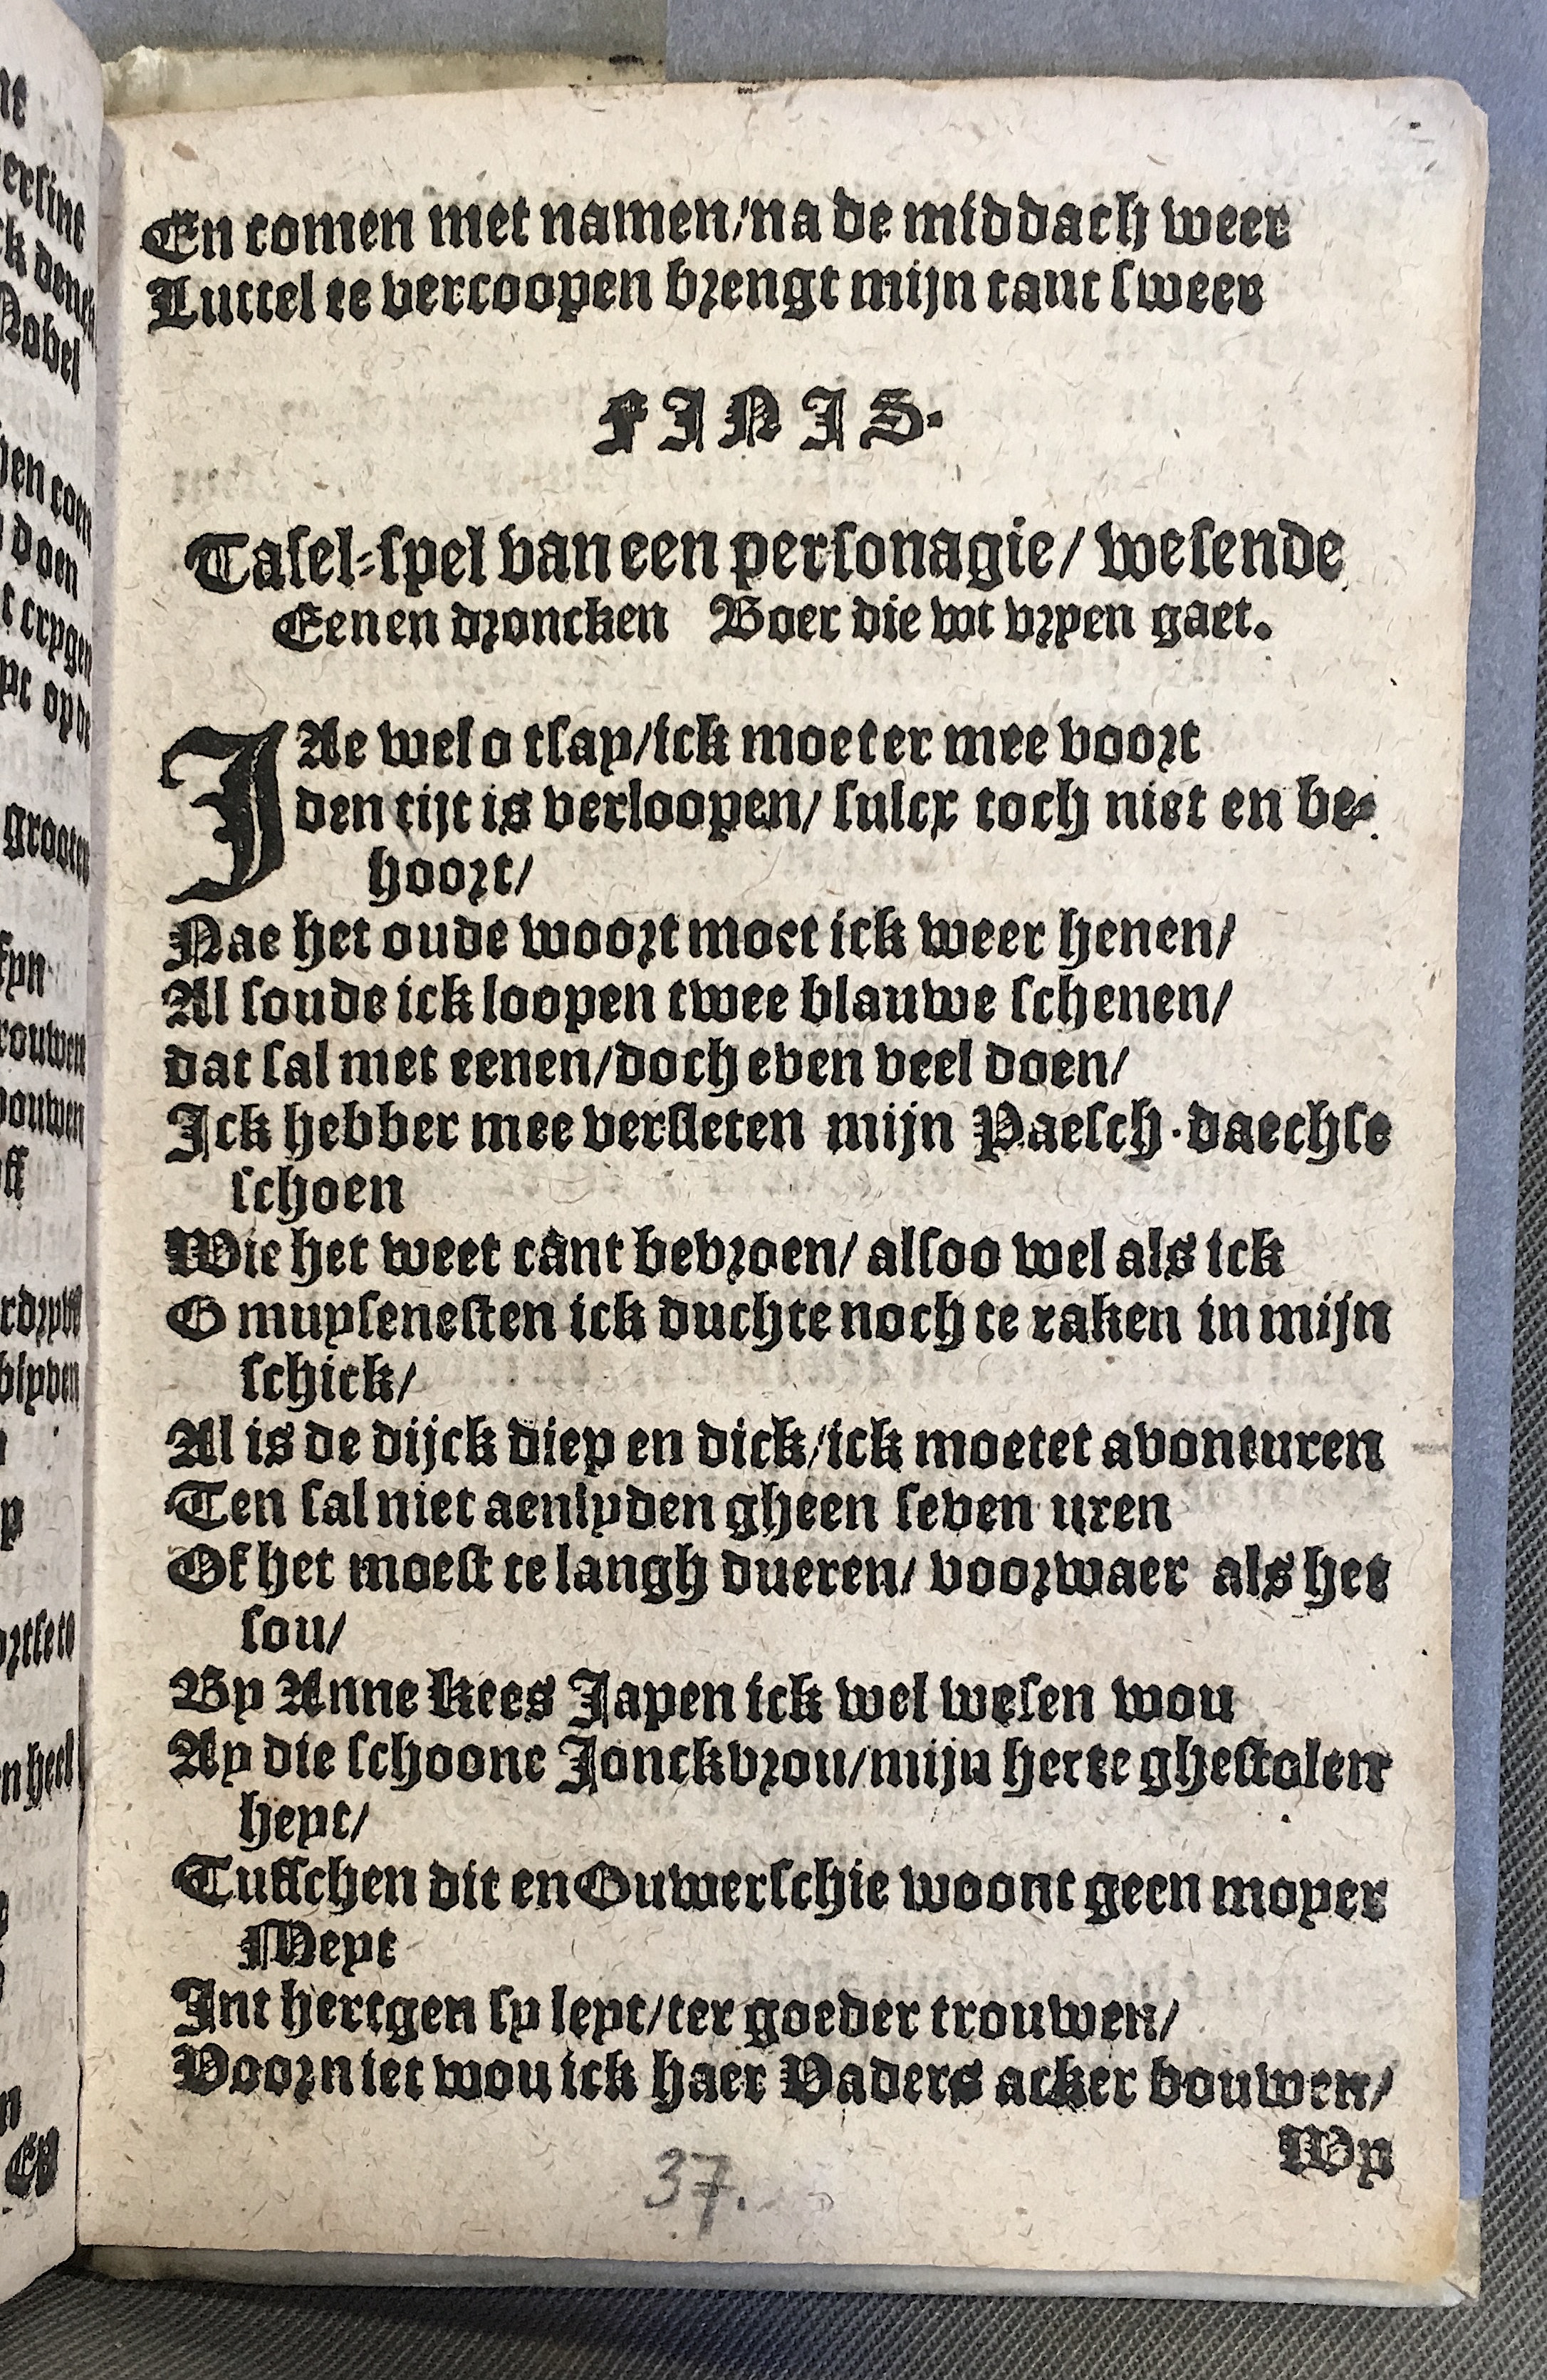 En comen met namen/na de middach weer
Luttel te vercoopen brengt mijn tant sweer
FINIS.
Tafel-spel van een personagie/ wesende
Eenen droncken Boer die wt vryen gaet.
IAe wel o tsay/ick moeter mee voort
den tijt is verloopen/ sulcx toch niet en be-
hoort/
Nae het oude woort moet ick weer henen/
Al soude ick loopen twee blauwe schenen/
dat sal met eenen/doch even veel doen/
Ick hebber mee versleten mijn Paesch-daechse
schoen
Wie het weet cânt bevroen/ alsoo wel als ick
O muysenesten ick duchte noch te raken in mijn
schick/
Al is de dijck diep en dick/ick moetet avonturen
Ten sal niet aenlyden gheen seven uren
Of het moest te langh dueren/ voorwaer als het
sou/
By Anne Kees Japen ick wel wesen wou
Ay die schoone Jonckvrou/mijn herte ghestolen
heyt/
Tusschen dit en Ouwerschie woont geen moyer
Meyt
Int hertgen sy leyt/ter goeder trouwen/
Voor niet wou ick haer Vaders acker bouwen/
Wy
37.
ersine
ck denck
Nobel
en coen
doen
t crygen
pt op de
grooten
fyn
rouwen
bouwen
rdryven
blyven
n heel
En